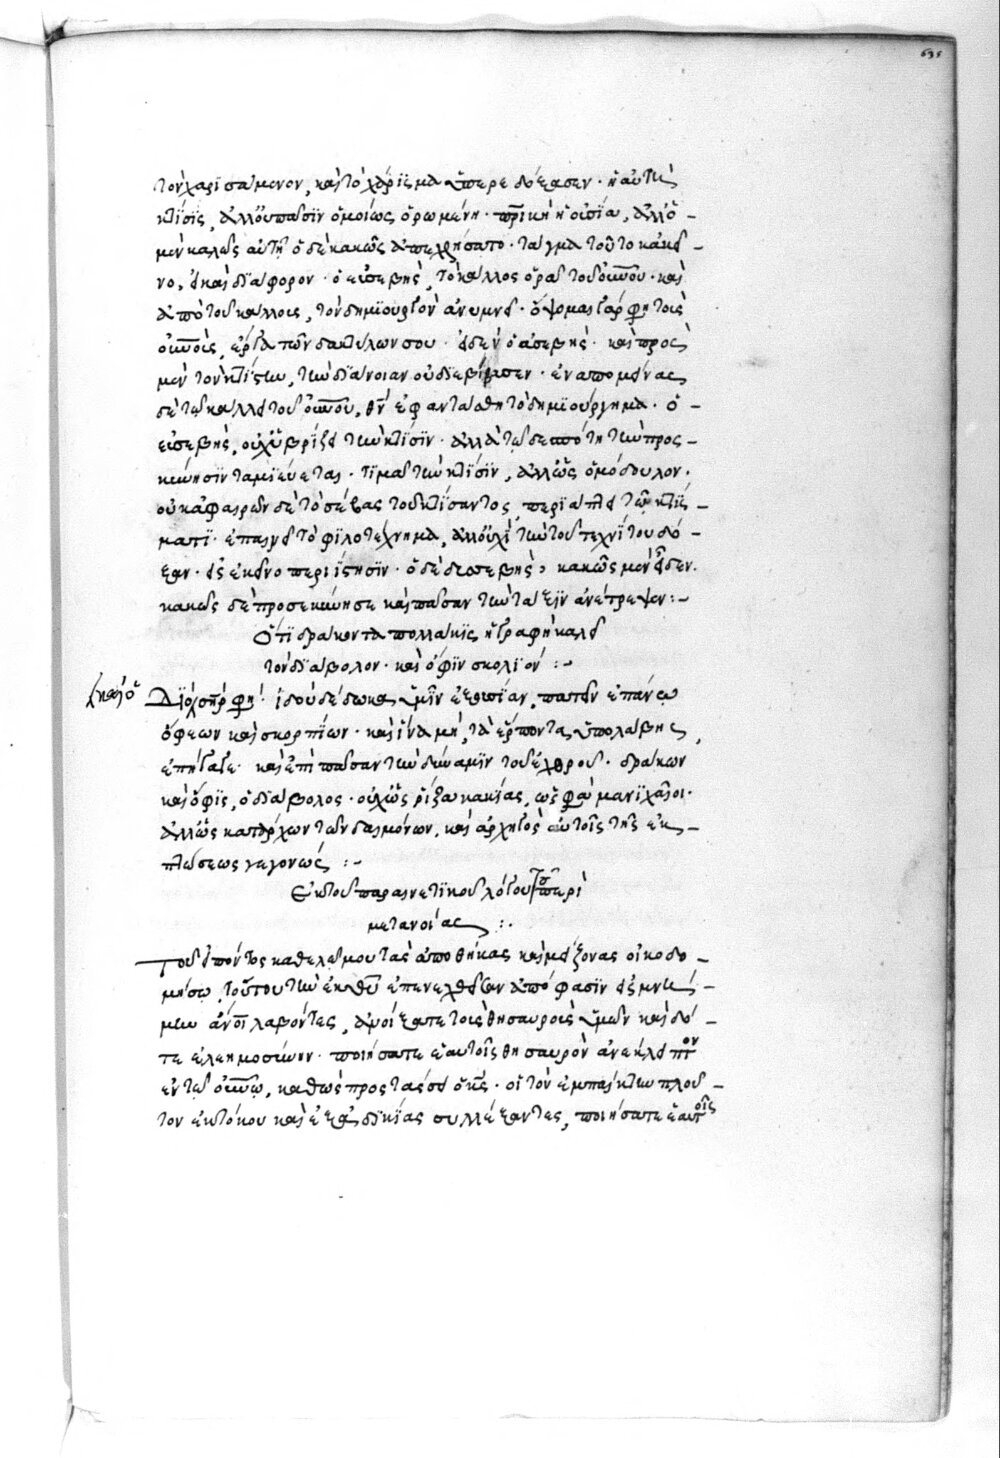 τὸν χαρισάμενον, καὶ τὸ χάρισμα ὑπερεδόξασεν· ἡ αὐτὴ
κτίσις, ἀλλ' οὐ πᾶσιν ὁμοίως ὁρωμένη· ἡ οὐσία, ἀλλ' ὁ
μὲν καλῶς αὐτῇ ὁ δὲ κακῶς ἀπεχρήσατο· τάγμα τοῦτο κἀκεῖ-
νο, εἰ καὶ διάφορον· ὁ εὐσεβὴς, τὸ κάλλος ὁρᾷ τοῦ οὐνοῦ· καὶ
ἀπὸ τοῦ κάλλους, τὸν δημιουργὸν ἀνυμνεῖ· ὄψομαι γάρ φησι τοὺς
οὐνοὺς, ἔργα τῶν δακτύλων σου· εἶδεν ὁ ἀσεβὴς· καὶ πρὸς
μὲν τὸν κτίστην, τὴν διάνοιαν οὐ διεβίβασεν· ἐναπομείνας
δὲ τῷ κάλλει τοῦ οὐνοῦ, θν ἐφαντάσθη τὸ δημιούργημα· ὁ
εὐσεβὴς, οὐχ ὑβρίζει τὴν κτίσιν· ἀλλὰ τῷ δεσπότῃ τὴν προσ-
κύνησιν ταμιεύεται· τιμᾷ τὴν κτίσιν, ἀλλ' ὡς ὁμόδουλον·
οὐκ ἀφαιρῶν δὲ τὸ σέβας τοῦ κτίσαντος, περιάπτει τῷ κτίσ-
ματι· ἐπαινεῖ τὸ φιλοτέχνημα, ἀλλ' οὐχὶ τὴν τοῦ τεχνίτου δό-
ξαν· εἰς ἐκεῖνο περιίστησιν· ὁ δὲ δυσσεβὴς, κακῶς μὲν εἶδεν·
κακῶς δὲ προσεκύνησε καὶ πᾶσαν τὴν τάξιν ἀνέτρεψεν:-
Ὅτι δράκοντα πολλάκις ἡ γραφὴ καλεῖ
τὸν διάβολον· καὶ ὄφιν σκολιόν :-
Διὸ φησί· ἰδοὺ δέδωκα ὑμῖν ἐξουσίαν, πατεῖν ἐπάνω
ὄφεων καὶ σκορπίων· καὶ ἵνα μὴ, τὰ ἕρποντα ὑπολάβῃς,
ἐπήγαγε· καὶ ἐπὶ πᾶσαν τὴν δύναμιν τοῦ ἐχθροῦ· δράκων
καὶ ὄφις, ὁ διάβολος· οὐχ ὡς ῥίζα κακίας, ὡς φασὶ μανιχαῖοι·
ἀλλ' ὡς κατάρχων τῶν δαιμόνων, καὶ ἀρχηγὸς αὐτοῖς τῆς ἐκ-
πτώσεως γεγονώς :-
Ἐκ τοῦ παραινετικοῦ λόγου τοῦ περὶ
μετανοίας :·
Τοῦ εἰπόντος καθελῶ μου τὰς ἀποθήκας καὶ μείζονας οἰκοδο-
μήσω, τούτου τὴν ἐκ θυ ἐπενεχθεῖσαν ἀπόφασιν εἰς μνή-
μην λαβόντες, ἀνοίξατε τοὺς θησαυροὺς ὑμῶν καὶ δό-
τε ἐλεημοσύνην· ποιήσατε ἑαυτοῖς θησαυρὸν ἀνέκλειπτον
ἐν τῷ οὐνῷ, καθὼς προστάσσει ὁ κς· οἱ τὸν ἐμπαίκτην πλοῦ-
τον ἐκ τόκου καὶ ἐξ ἀδικίας συλλέξαντες, ποιήσατε ἑαυτοῖς